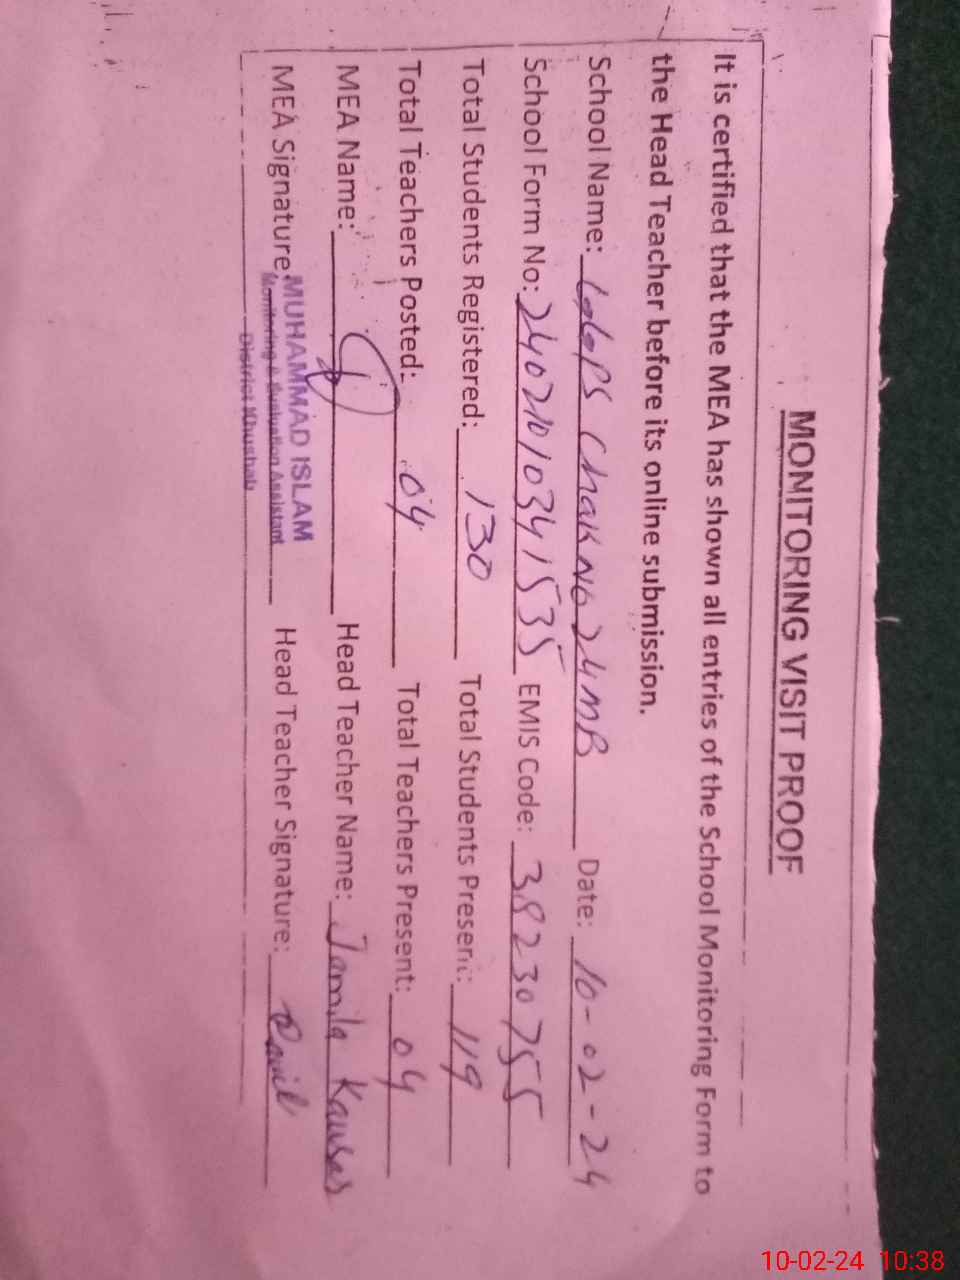 MONITORING VISIT PROOF
It is certified that the MEA has shown all entries of the School Monitoring Form to
the Head Teacher before its online submission.
School Name: GGPS Chak No 24 MB Date: 10-02-24
School Form No: 24021010341535 EMIS Code: 38230755
Total Students Registered: 130 Total Students Present: 119
Total Teachers Posted: 04 Total Teachers Present: 04
MEA Name: Head Teacher Name: Jamila Kausar
MEA Signature: MUHAMMAD ISLAM Head Teacher Signature:
Monitoring & Evaluation Assistant
District Khushab
10-02-24 10:38